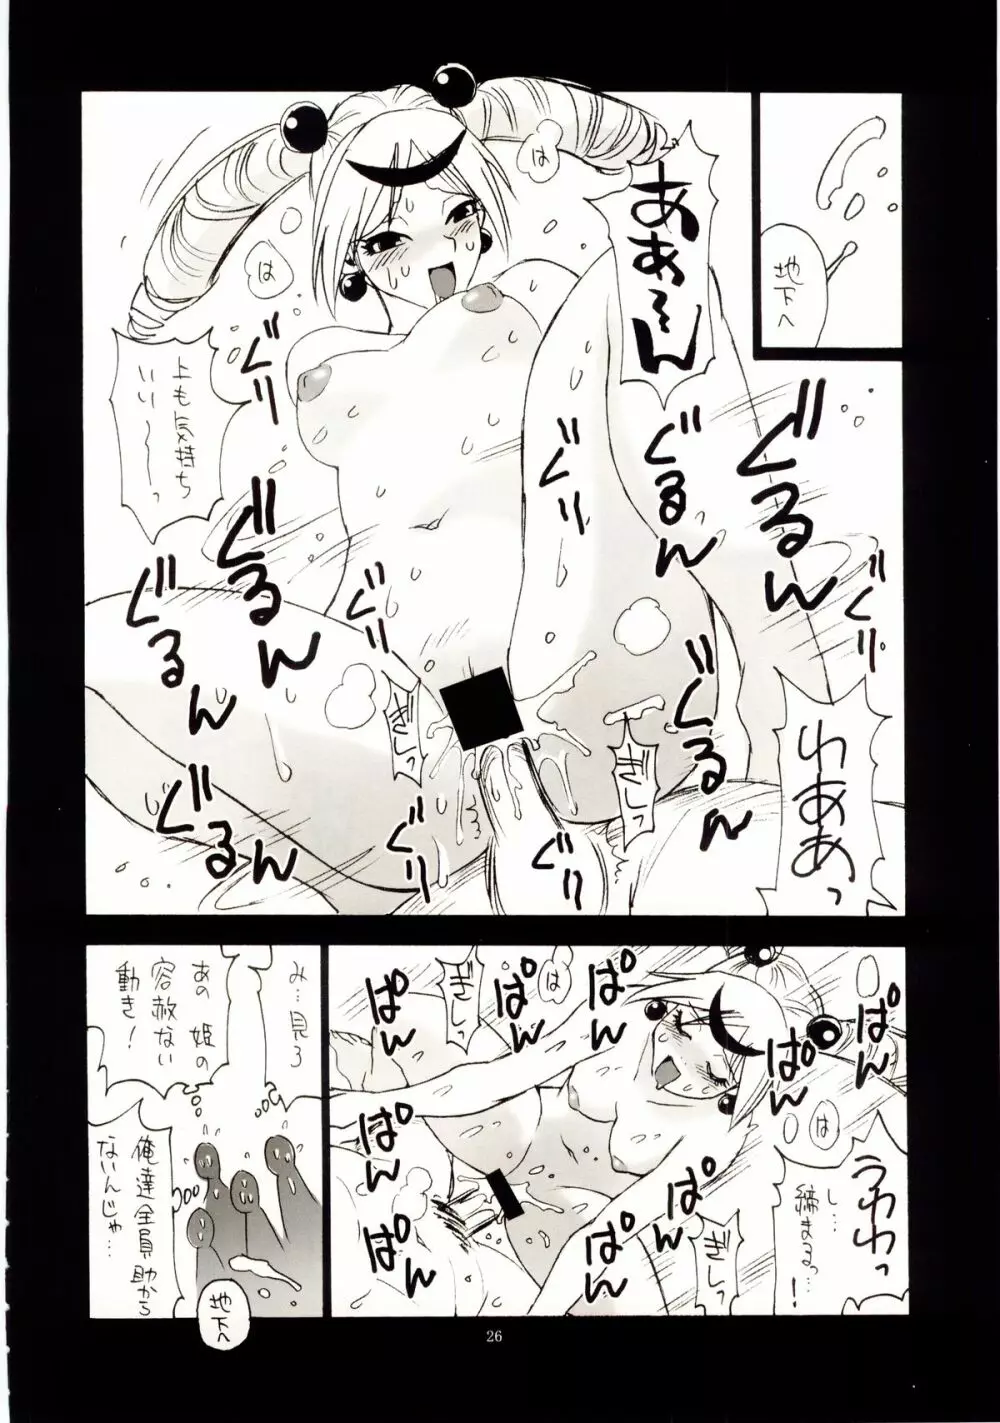 地下へ
ああ〜ん
は
は
上も気持ち
いい〜〜っ
ぐり
ぐり
ぐるん
ぐるん
ぐるん
ぐるん
ぐり
ぐり
ぎしっ
ぎしっ
ぐるん
ぐるん
ぐり
ぐり
わああっ
ぱん
ぱん
ぱん
ぱん
ぱん
ぱん
ぱん
ぱん
ぱん
ぎしっ
ぎしっ
は
は
うわわっ
し…
締まるっ…!
み…見ろ
あの姫の
容赦ない
動き!
俺達全員助から
ないんじゃ…
地下へ
26